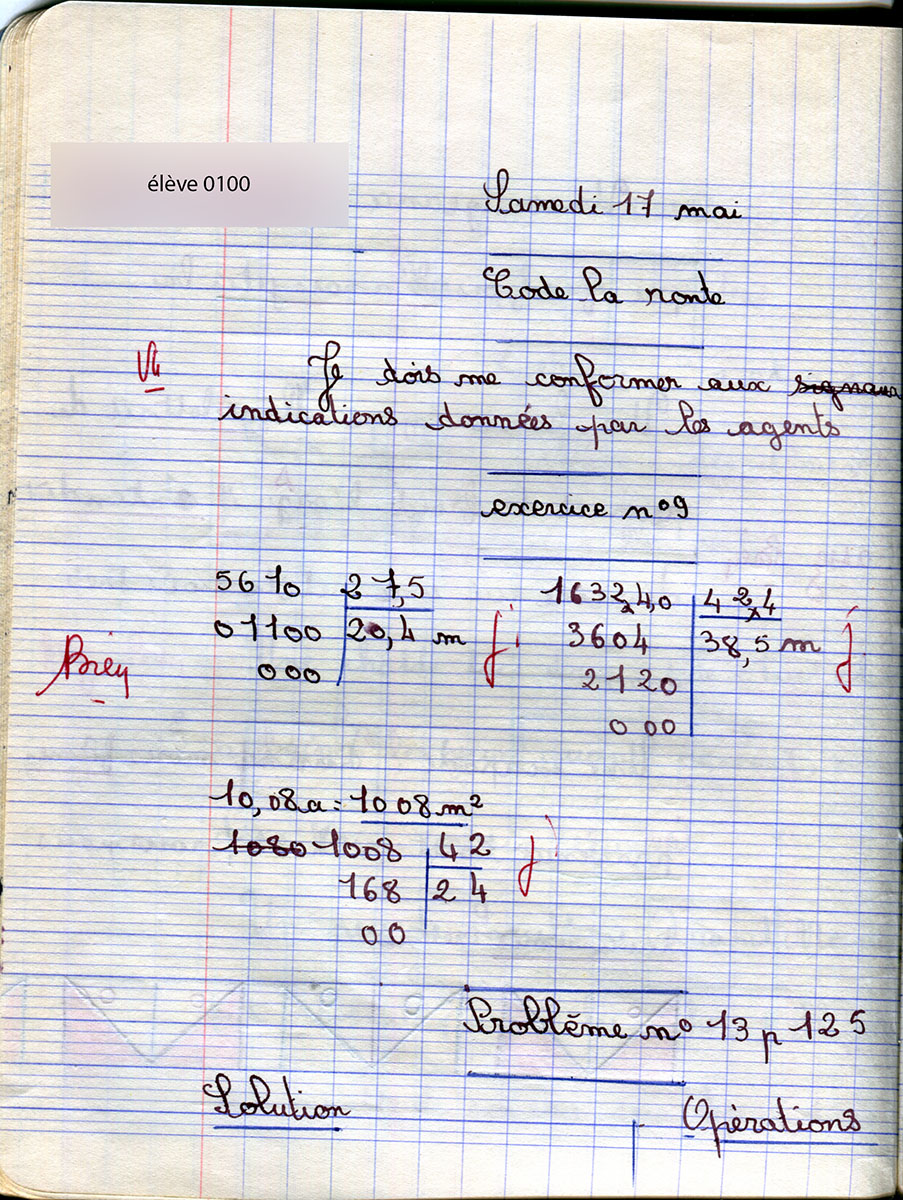 élève 0100
Samedi 17 mai
Code la route
Vu
Je dois me conformer aux signaux
indications données par les agents
exercice n°9
5610 27,5
01100 20,4 m j
000
Bien
163240 424
3604 38,5 m j
2120
000
10,08a = 1008 m²
1080 1008 42 j
168 24
00
Problème n° 13 p 125
Solution
Opérations